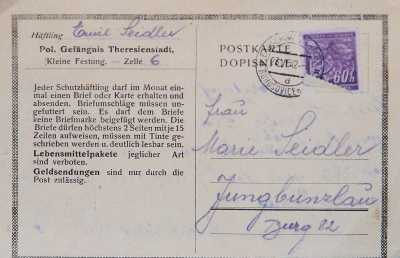 Häftling Emil Seidler
Pol. Gefängnis Theresienstadt,
Kleine Festung. — Zelle 6
Jeder Schutzhäftling darf im Monat ein-
mal einen Brief oder Karte erhalten und
absenden. Briefumschläge müssen un-
gefuttert sein. Es darf dem Briefe
keine Briefmarke beigefügt werden. Die
Briefe dürfen höchstens 2 Seiten mit je 15
Zeilen aufweisen, müssen mit Tinte ge-
schrieben werden u. deutlich lesbar sein.
Lebensmittelpakete jeglicher Art
sind verboten.
Geldsendungen sind nur durch die
Post zulässig.
POSTKARTE
DOPISN
60h
Frau
Marie Seidler
Jungbunzlau
Burg 82